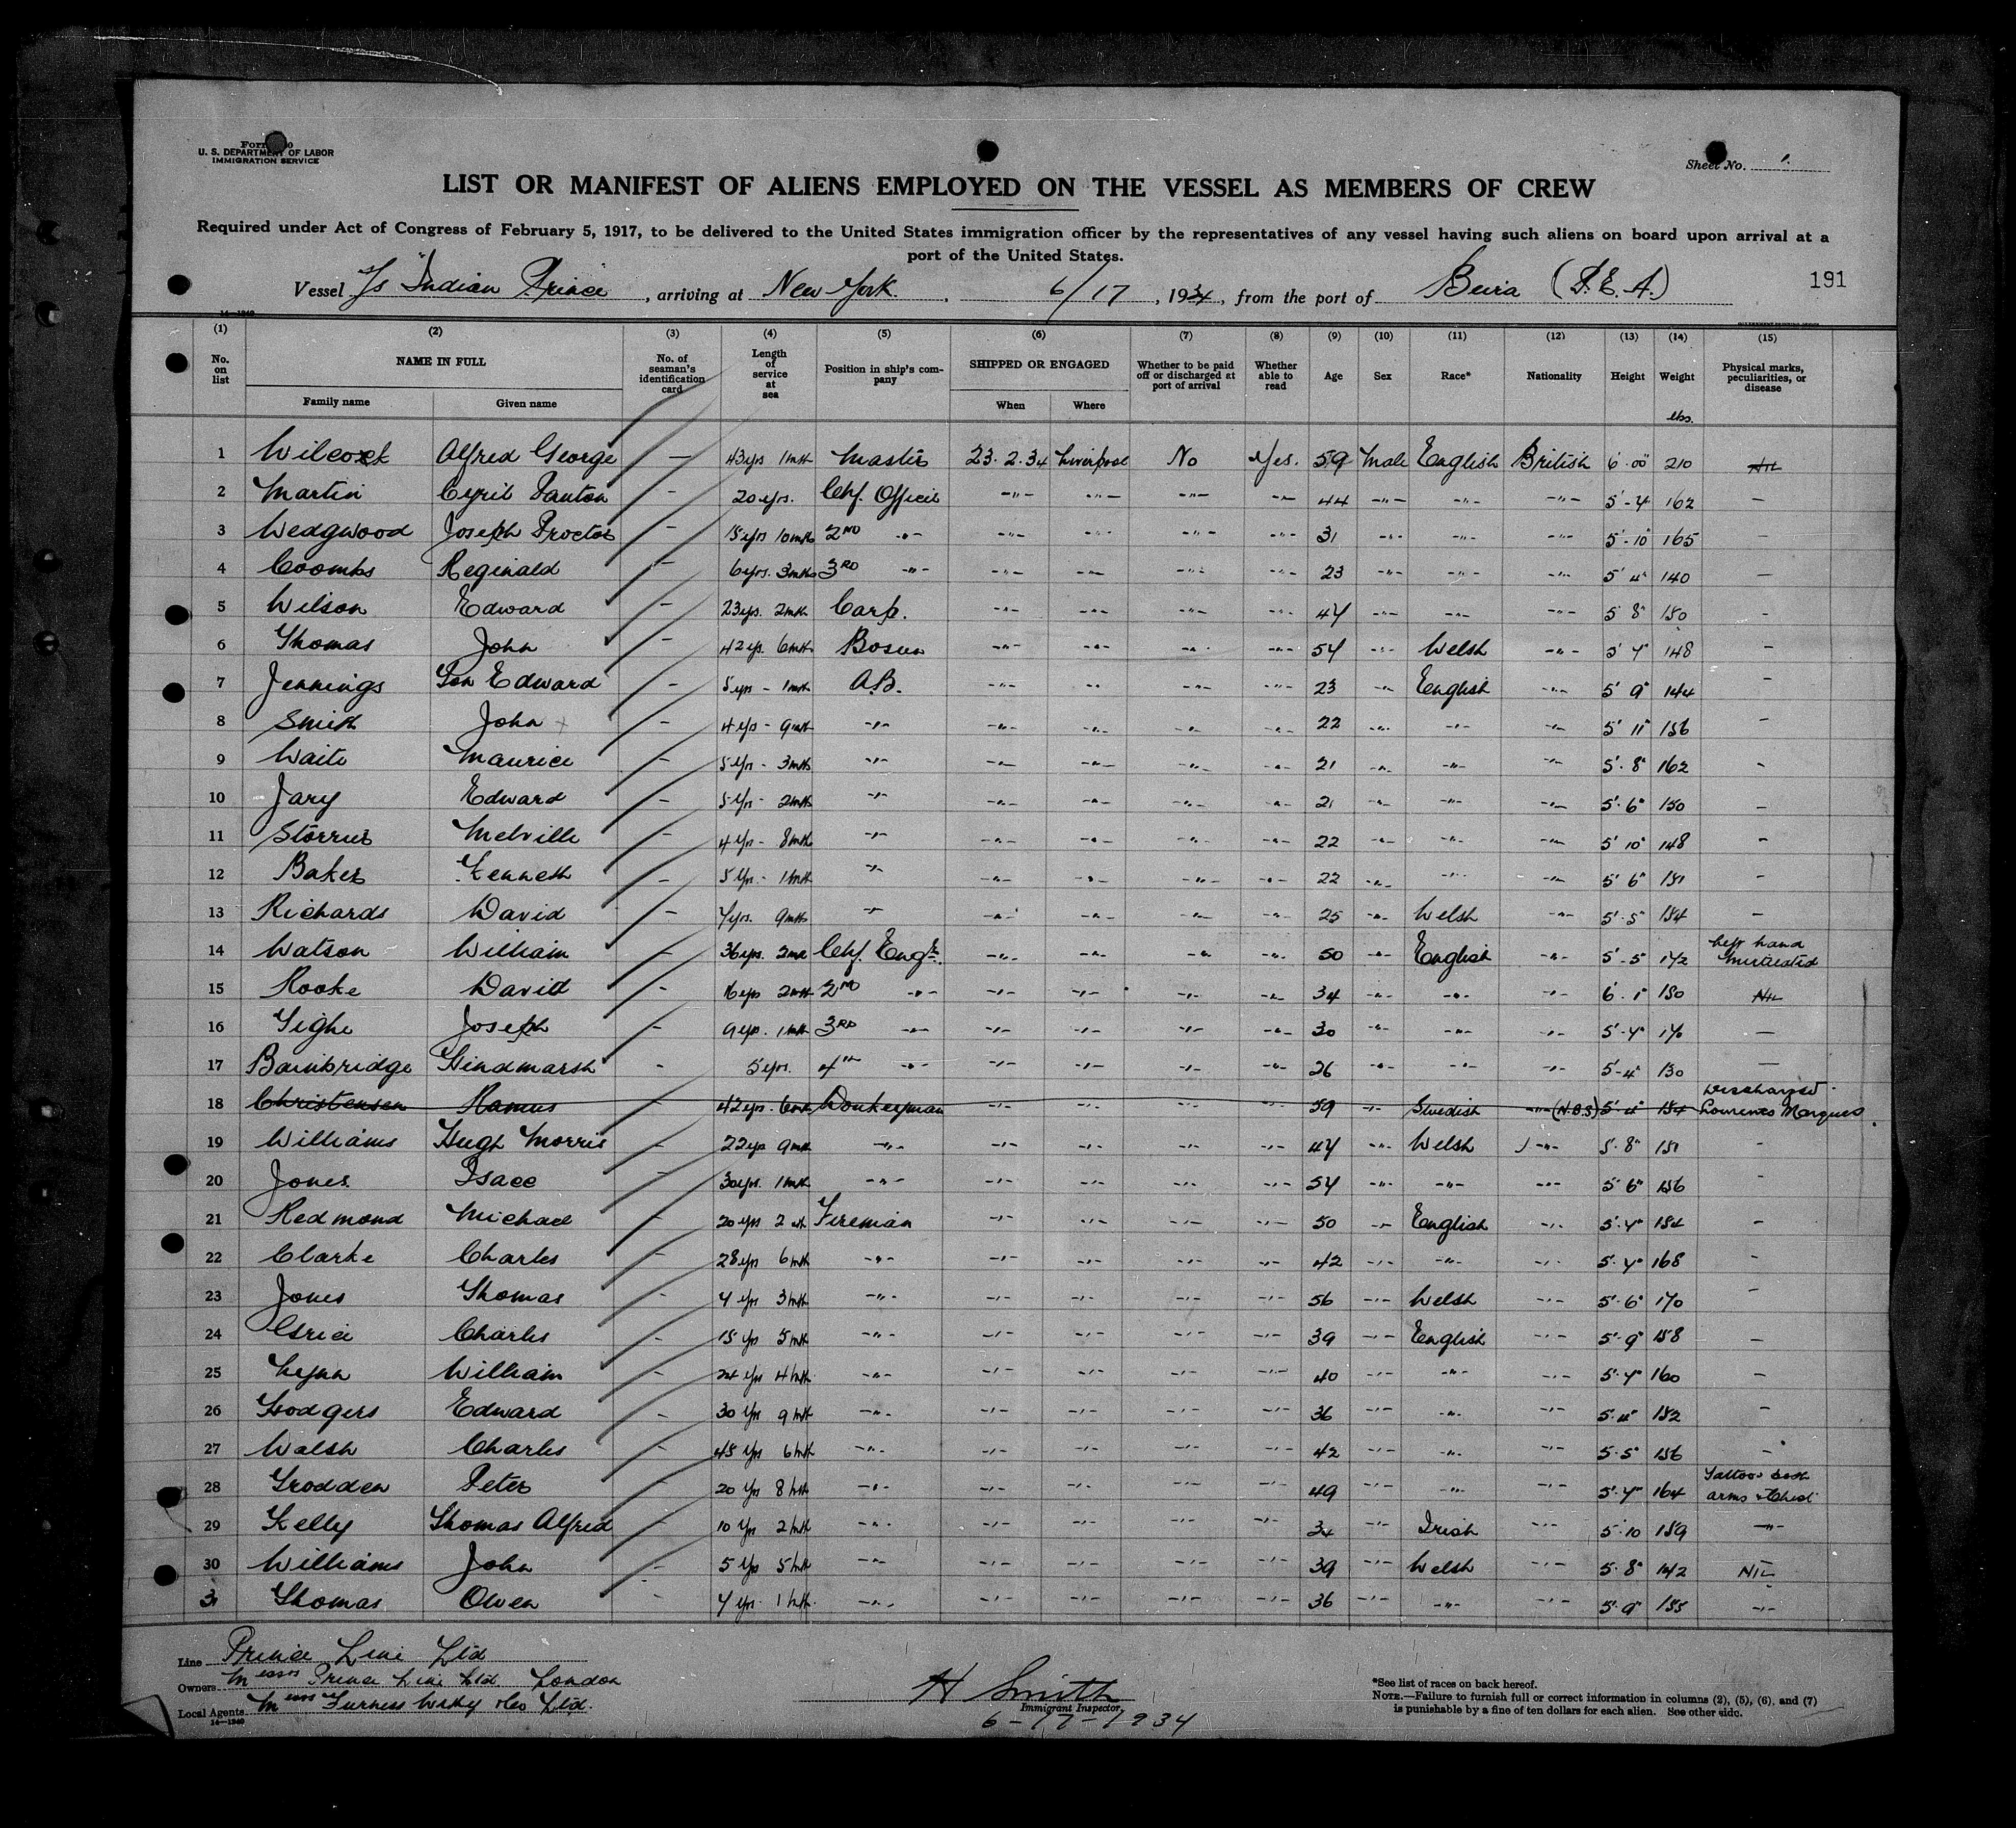 U. S. DEPARTMENT OF LABOR
IMMIGRATION SERVICE
Sheet No. 1.
LIST OR MANIFEST OF ALIENS EMPLOYED ON THE VESSEL AS MEMBERS OF CREW
Required under Act of Congress of February 5, 1917, to be delivered to the United States immigration officer by the representatives of any vessel having such aliens on board upon arrival at a
port of the United States.
Vessel "Indian Prince", arriving at New York, 6/17, 1934, from the port of Beira (P.E.A.) 191
(1) (2) (3) (4) (5) (6) (7) (8) (9) (10) (11) (12) (13) (14) (15)
No. on list NAME IN FULL Family name Given name No. of seaman's identification card Length of service at sea Position in ship's company SHIPPED OR ENGAGED When Where Whether to be paid off or discharged at port of arrival Whether able to read Age Sex Race* Nationality Height Weight lbs. Physical marks, peculiarities, or disease
1 Wilcock Alfred George — 43yrs 1mth Master 23.2.34 Liverpool No Yes. 59 Male English British 6'00" 210 NIL
2 Martin Cyril Panton - 20 yrs. Chf. Officer -"- -"- -"- -"- 44 -"- -"- -"- 5'-4" 162 -
3 Wedgwood Joseph Proctor - 15yrs 10mths 2ND -"- -"- -"- -"- -"- 31 -"- -"- -"- 5'-10" 165 -
4 Coombs Reginald - 6yrs. 3mths 3RD -"- -"- -"- -"- -"- 23 -"- -"- -"- 5'4" 140 -
5 Wilson Edward - 23yrs. 2mth Carp. -"- -"- -"- -"- 47 -"- -"- -"- 5'8" 150 -
6 Thomas John - 42yrs. 6mth Bosun -"- -"- -"- -"- 54 -"- Welsh -"- 5'7" 148 -
7 Jennings Edward - 5yrs - 1mth A.B. -"- -"- -"- -"- 23 -"- English -"- 5'9" 144 -
8 Smith John - 4yrs - 9mth -"- -"- -"- -"- -"- 22 -"- -"- -"- 5'11" 156 -
9 Waite Maurice - 5yrs - 3mths -"- -"- -"- -"- -"- 21 -"- -"- -"- 5'8" 162 -
10 Jary Edward - 5yrs - 2mths -"- -"- -"- -"- -"- 21 -"- -"- -"- 5'6" 150 -
11 Storrier Melville - 4yrs - 8mth -"- -"- -"- -"- -"- 22 -"- -"- -"- 5'10" 148 -
12 Baker Kenneth - 5yrs - 1mth -"- -"- -"- -"- -"- 22 -"- -"- -"- 5'6" 151 -
13 Richards David - 7yrs. 9mths -"- -"- -"- -"- -"- 25 -"- Welsh -"- 5'-5" 154 -
14 Watson William - 36yrs. 2mth Chf. Engr. -"- -"- -"- -"- 50 -"- English -"- 5'-5" 172 Left hand mutilated
15 Rooke David - 16yrs 2mth 2ND -"- -"- -"- -"- -"- 34 -"- -"- -"- 6'1" 180 NIL
16 Tighe Joseph - 9yrs. 1mth 3RD -"- -"- -"- -"- -"- 30 -"- -"- -"- 5'-7" 170 —
17 Bainbridge Hindmarsh - 5yrs. 4th -"- -"- -"- -"- -"- 26 -"- -"- -"- 5'-4" 130 —
18 Christensen Hamus 42yrs. 6mth Donkeyman -"- -"- -"- -"- 59 -"- Swedish -"- (N.B.S) 5'4" 154 Discharged Lourenco Marques
19 Williams Hugh Morris - 22yrs 9mth -"- -"- -"- -"- -"- 47 -"- Welsh -"- 5'8" 151 -
20 Jones Isaac - 30yrs. 1mth -"- -"- -"- -"- -"- 54 -"- -"- -"- 5'6" 156 -
21 Redmond Michael - 20yrs 2mth Fireman -"- -"- -"- -"- 50 -"- English -"- 5'7" 154 -
22 Clarke Charles - 28yrs 6mth -"- -"- -"- -"- -"- 42 -"- -"- -"- 5'7" 168 -
23 Jones Thomas - 4yrs 3mth -"- -"- -"- -"- -"- 56 -"- Welsh -"- 5'6" 170 -
24 Grice Charles - 15yrs 5mth -"- -"- -"- -"- -"- 39 -"- English -"- 5'9" 158 -
25 Lynn William - 24yrs 4mth -"- -"- -"- -"- -"- 40 -"- -"- -"- 5'7" 160 -
26 Hodgers Edward - 30yrs 9mth -"- -"- -"- -"- -"- 36 -"- -"- -"- 5'4" 152 -
27 Walsh Charles - 45yrs 6mth -"- -"- -"- -"- -"- 42 -"- -"- -"- 5'5" 156 -
28 Grodden Peter - 20yrs 8mth -"- -"- -"- -"- -"- 49 -"- -"- -"- 5'7" 164 Tattoos both arms & Chest
29 Kelly Thomas Alfred - 10yrs 2mth -"- -"- -"- -"- -"- 34 -"- Irish -"- 5'10 159 -"-
30 Williams John - 5yrs 5mth -"- -"- -"- -"- -"- 39 -"- Welsh -"- 5'8" 142 NIL
31 Thomas Owen - 4yrs. 1mth -"- -"- -"- -"- -"- 36 -"- -"- -"- 5'9" 155 -"-
Line Prince Line Ltd
Owners Messrs Prince Line Ltd London
Local Agents Messrs Furness Withy & Co Ltd.
14—1240
H Smith
Immigrant Inspector
6-17-1934
*See list of races on back hereof.
NOTE.—Failure to furnish full or correct information in columns (2), (5), (6), and (7)
is punishable by a fine of ten dollars for each alien. See other side.